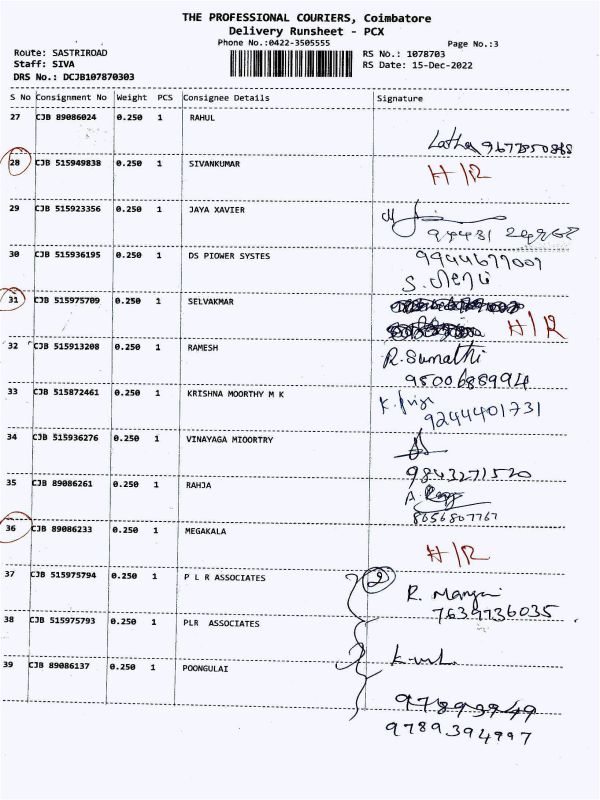 THE PROFESSIONAL COURIERS, Coimbatore
Delivery Runsheet - PCX
Phone No.:0422-3505555
Page No.:3
Route: SASTRIROAD
RS No.: 1078703
Staff: SIVA
RS Date: 15-Dec-2022
DRS No.: DCJB107870303
S No Consignment No Weight PCS Consignee Details Signature
27 CJB 89086024 0.250 1 RAHUL
Latha
28 CJB 515949838 0.250 1 SIVANKUMAR H/R
29 CJB 515923356 0.250 1 JAYA XAVIER
30 CJB 515936195 0.250 1 DS PIOWER SYSTES 9944677007
31 CJB 515975709 0.250 1 SELVAKMAR
H/R
32 CJB 515913208 0.250 1 RAMESH R. Sumathi
9500688994
33 CJB 515872461 0.250 1 KRISHNA MOORTHY M K
9244401731
34 CJB 515936276 0.250 1 VINAYAGA MIOORTRY
9843271520
35 CJB 89086261 0.250 1 RAHJA
8656807767
36 CJB 89086233 0.250 1 MEGAKALA H/R
37 CJB 515975794 0.250 1 P L R ASSOCIATES 2 R. Mangai
7639736035
38 CJB 515975793 0.250 1 PLR ASSOCIATES
39 CJB 89086137 0.250 1 POONGULAI
9789394997